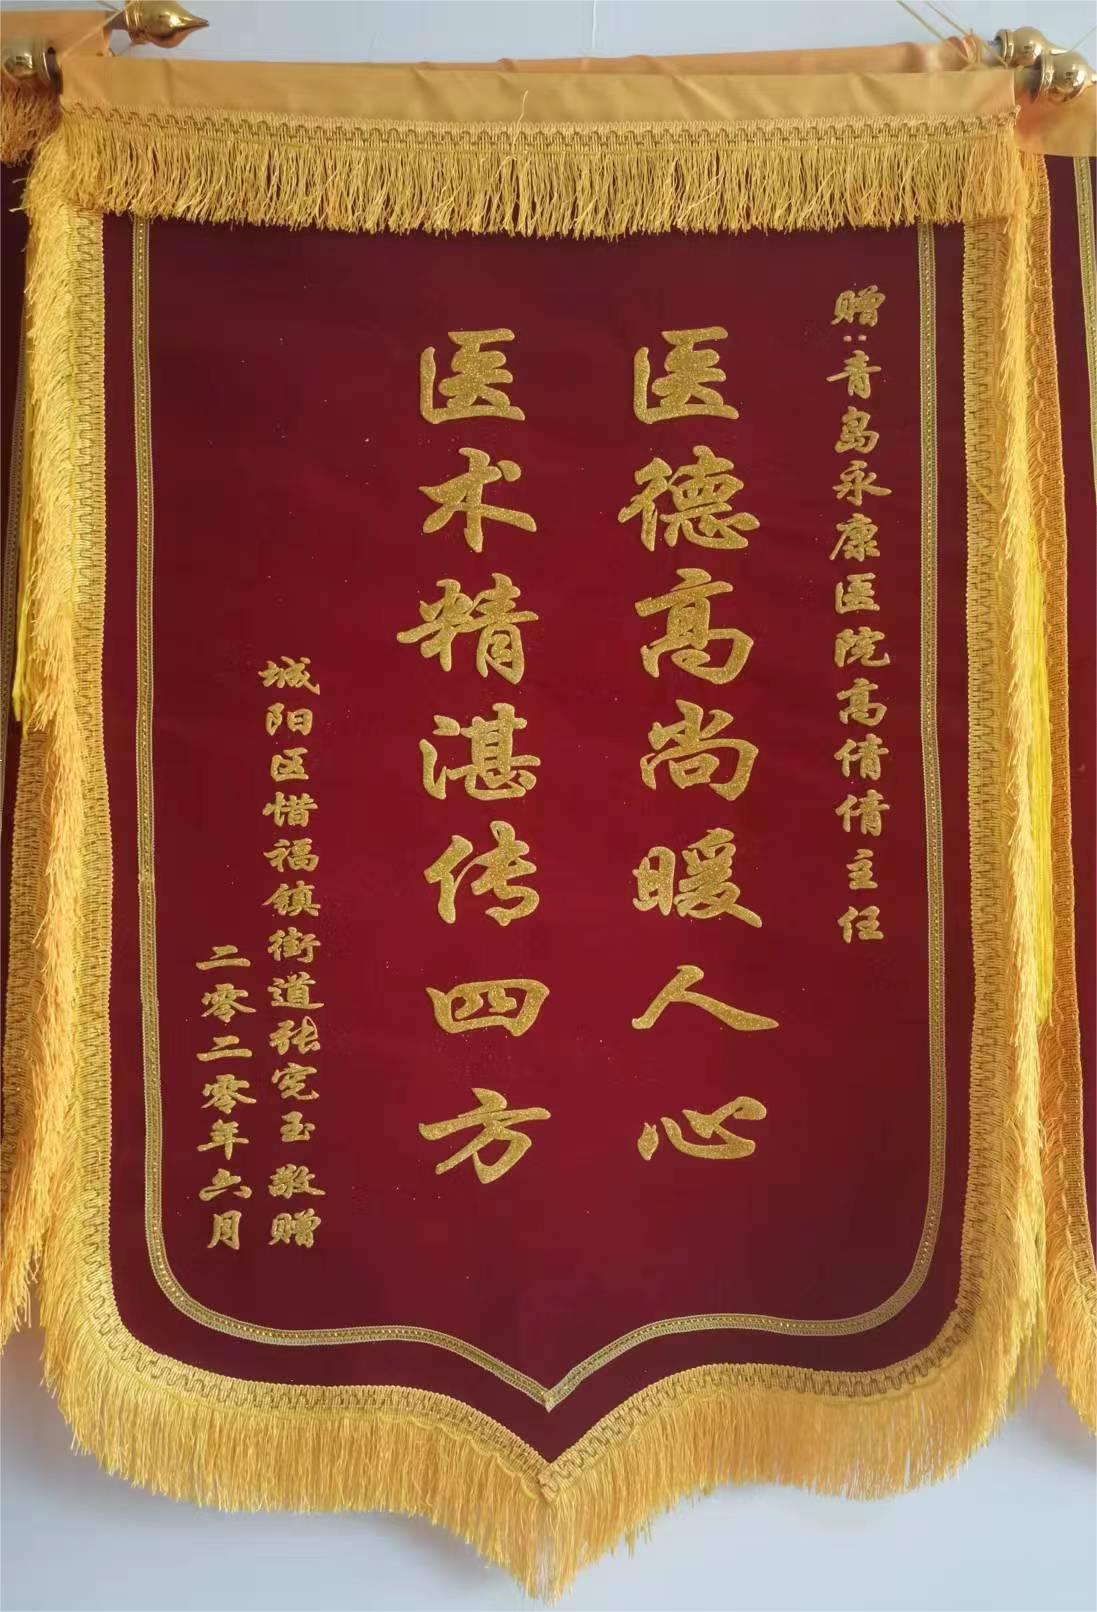 赠:青岛永康医院高倩倩主任
医德高尚暖人心
医术精湛传四方
城阳区惜福镇街道张宪玉敬赠
二零二零年六月